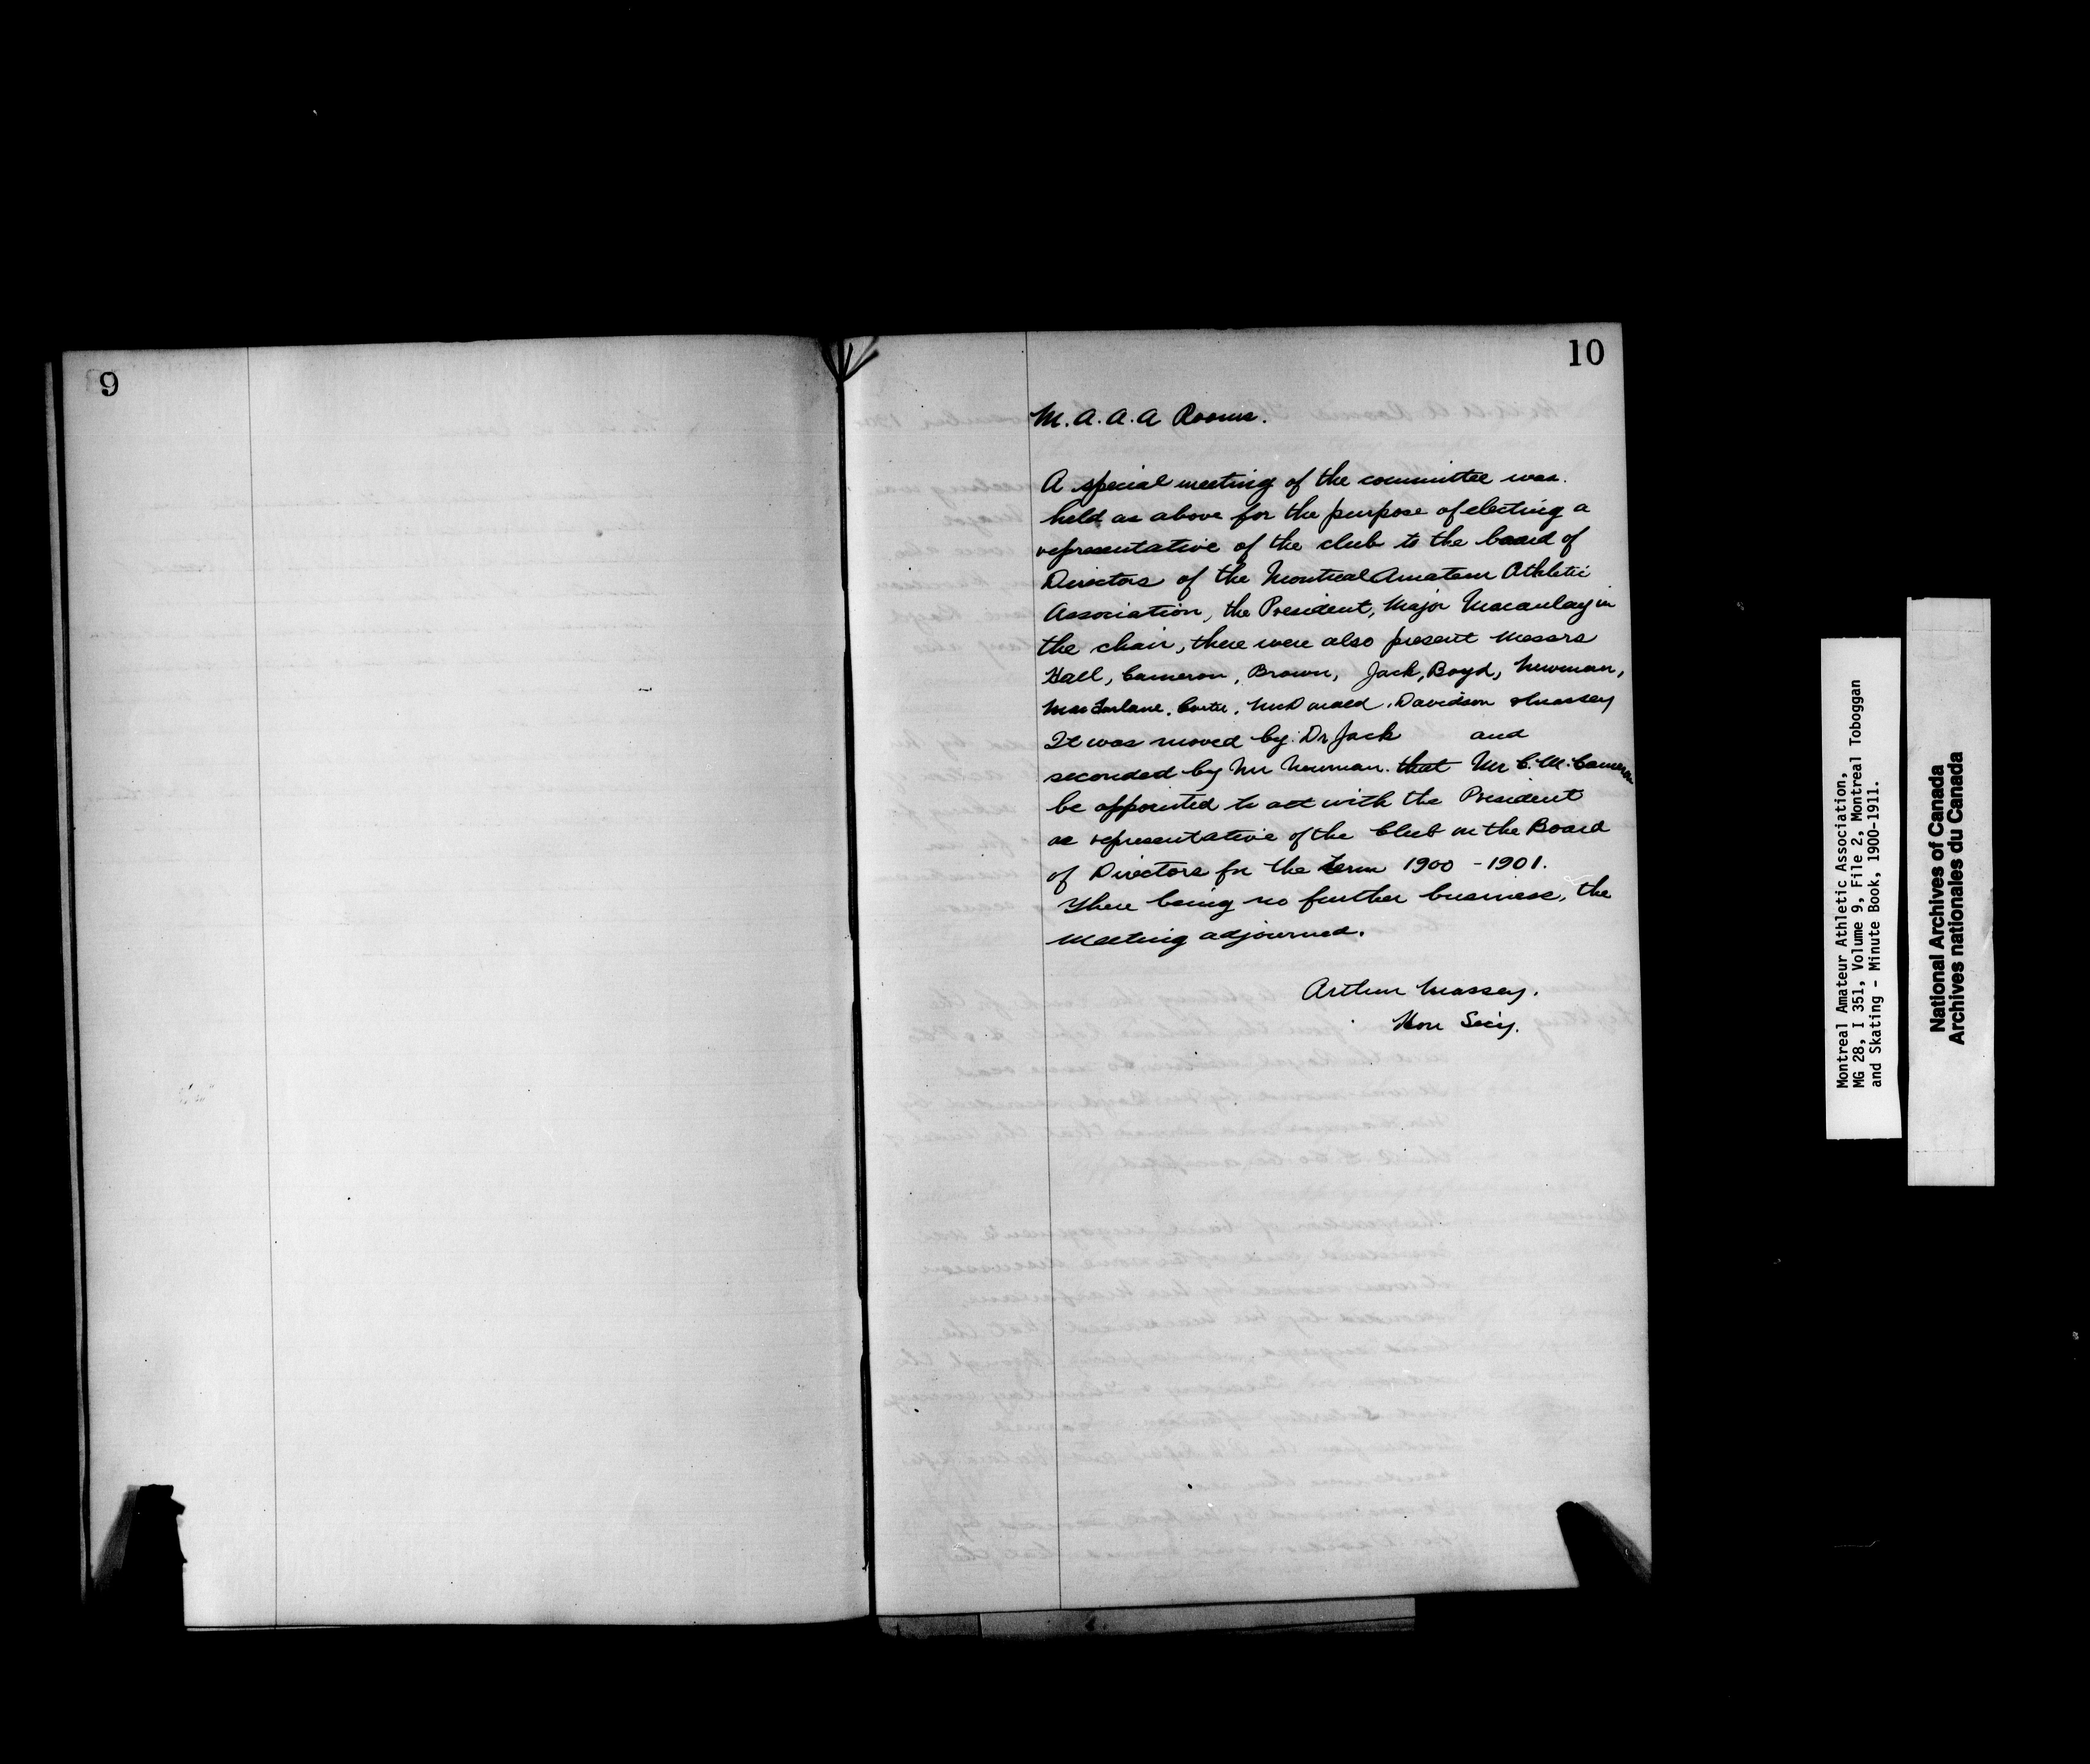 9
10
M.A.A.A Rooms.
A special meeting of the committee was
held as above for the purpose of electing a
representative of the club to the board of
Directors of the Montreal Amateur Athletic
Association, the President, Major Macaulay in
the chair, there were also present Messrs
Hall, Cameron, Brown, Jack, Boyd, Newman,
MacFarlane, McDonald, Davidson & Massey
It was moved by Dr Jack and
seconded by Mr Newman. that Mr C. M. Cameron
be appointed to act with the President
as representative of the Club on the Board
of Directors for the term 1900 - 1901.
There being no further business, the
Meeting adjourned.
Arthur Massey.
Hon Secy.
Montreal Amateur Athletic Association,
MG 28, I 351, Volume 9, File 2, Montreal Toboggan
and Skating - Minute Book, 1900-1911.
National Archives of Canada
Archives nationales du Canada